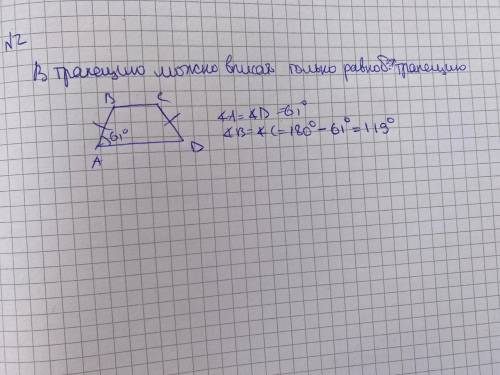 №2
В трапецию можно вписать только равноб. трапецию
B C
∠A=∠D=61°
61°
∠B=∠C=180°-61°=119°
A D